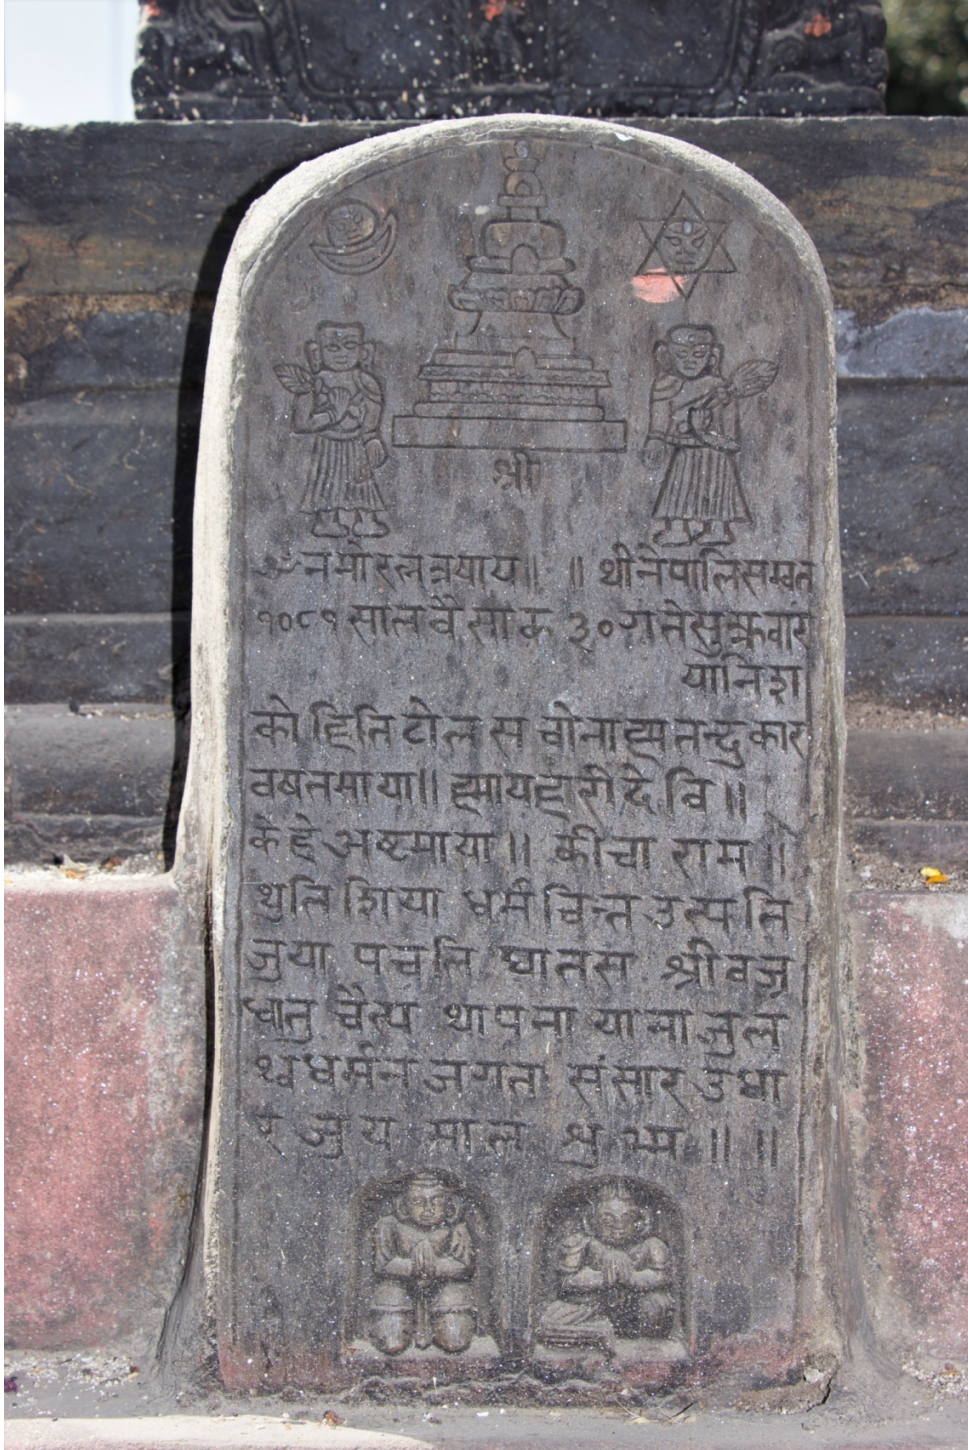 श्री
ॐ नमो रत्नत्रयाय॥ ॥ श्रीनैपालिसम्वत
१०८१ साल वैसाक ३० गते सुक्रवार
यानिश
को हिति टोल स चोना ह्म नन्दु कार
वषतमाया॥ ह्मायह्मरी देवि॥
केहे अष्टमाया॥ कीचा राम॥
थुति शिया धर्म चित्त उत्पति
जुया पचति घातस श्रीवज्र
धातु चैत्य थापना यानाजुल
थ्व धर्मन जगत संसार उधा
र जुय माल शुभ्म॥ ॥